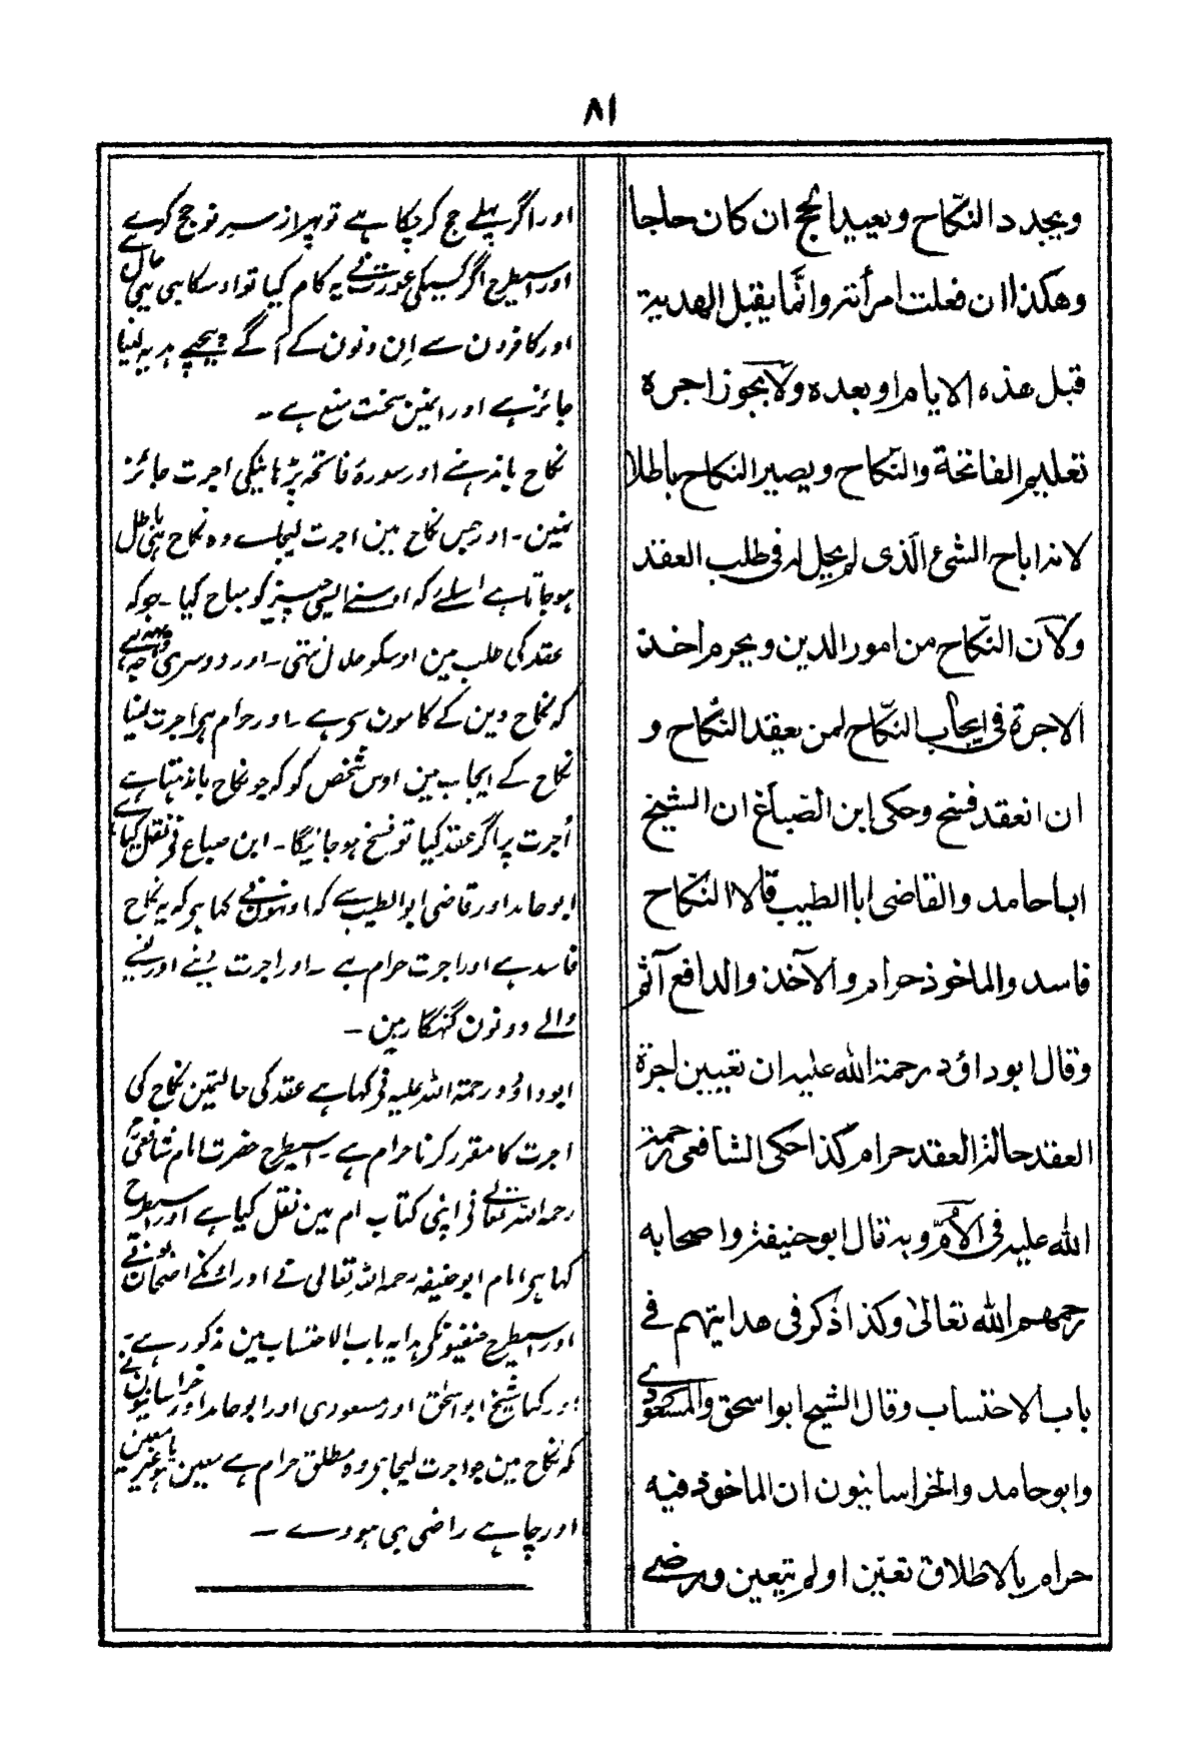 ٨١
ويجدد النكّاح ويعيد الحج ان كان حاجا
وهكذا ان فعلت امرأته وانّما يقبل الهدية
قبل هذه الايام او بعده ولا يجوز اجرة
تعليم الفاتحة والنّكاح ويصير النكاح باطلا
لانه اباح الشئ الّذى لم يحل له فى طلب العقد
ولان النّكاح من امور الدين ويحرم اخذ
الاجرة فى ايجاب النّكاح لمن يعقد النّكاح و
ان انعقد فسخ وحكى ابن الصّباغ ان الشيخ
ابا حامد والقاضى ابا الطيب قالا النّكاح
فاسد والماخوذ حرام والآخذ والدافع آثم
وقال ابو داؤد رحمة الله عليه ان تعيين اجرة
العقد حالة العقد حرام كذا حكى الشافعى رحمة
الله عليه فى الاُمّ وبه قال ابو حنيفة واصحابه
رحمهم الله تعالىٰ وكذا ذكر فى هدايتهم فے
باب الاحتساب وقال الشيخ ابو اسحق والمسعودے
وابو حامد والخراسانيون ان الماخوذ فيه
حرام بالاطلاق تعيّن او لم يتعين ورضے
اور اگر پہلے حج کر چکا ہے تو پہر از سر نو حج کرے
اور اسیطرح اگر کسیکی عورت نے یہ کام کیا تو اوسکا بھی یہی حال ہے
اور کافرون سے اِن دنون کے آگے پیچھے ہدیہ لینا
جائز ہے اور انمین سخت منع ہے ۔
نکاح باندہنے اور سورۂ فاتحہ پڑہانیکی اجرت جائز
نہین ۔ اور جس نکاح مین اجرت لیجاے وہ نکاح ہی باطل
ہوجاتا ہے اسلئے کہ اوسنے ایسی چیز کو مباح کیا ۔ جو کہ
عقد کی طلب مین اوسکو حلال نہتی ۔ اور دوسری وجہ یہ ہے
کہ نکاح دین کے کامون سے ہے ۔ اور حرام ہر اجرت لینا
نکاح کے ایجاب مین اوس شخص کو کہ جو نکاح باندہتا ہے
اُجرت پر اگر عقد کیا تو فسخ ہو جائیگا ۔ ابن صباغ نے نقل کیا ہے
ابو حامد اور قاضی ابو الطیب سے کہ اونہون نے کہا ہر کہ یہ نکاح
فاسد ہے اور اجرت حرام ہے ۔ اور اجرت دینے اور لینے
والے دونون گنہگار ہین ۔
ابو داؤد رحمۃ اللہ علیہ نے کہا ہے عقد کی حالتمین نکاح کی
اجرت کا مقرر کرنا حرام ہے ۔ اسیطرح حضرت امام شافعی
رحمہ اللہ تعالی نے اپنی کتاب ام مین نقل کیا ہے اور اسیطرح
کہا ہر امام ابو حنیفہ رحمہ اللہ تعالی نے اور انکے اصحابون نے
اور اسیطرح حنفیونکی ہدایہ باب الاحتساب مین مذکور ہے ۔
اور کہا شیخ ابو اسحٰق اور مسعودی اور ابو حامد اور خراسانیون نے
کہ نکاح مین جو اجرت لیجاہر وہ مطلق حرام ہے معین ہو یا غیر معین
اور چاہے راضی بہی ہووے ۔